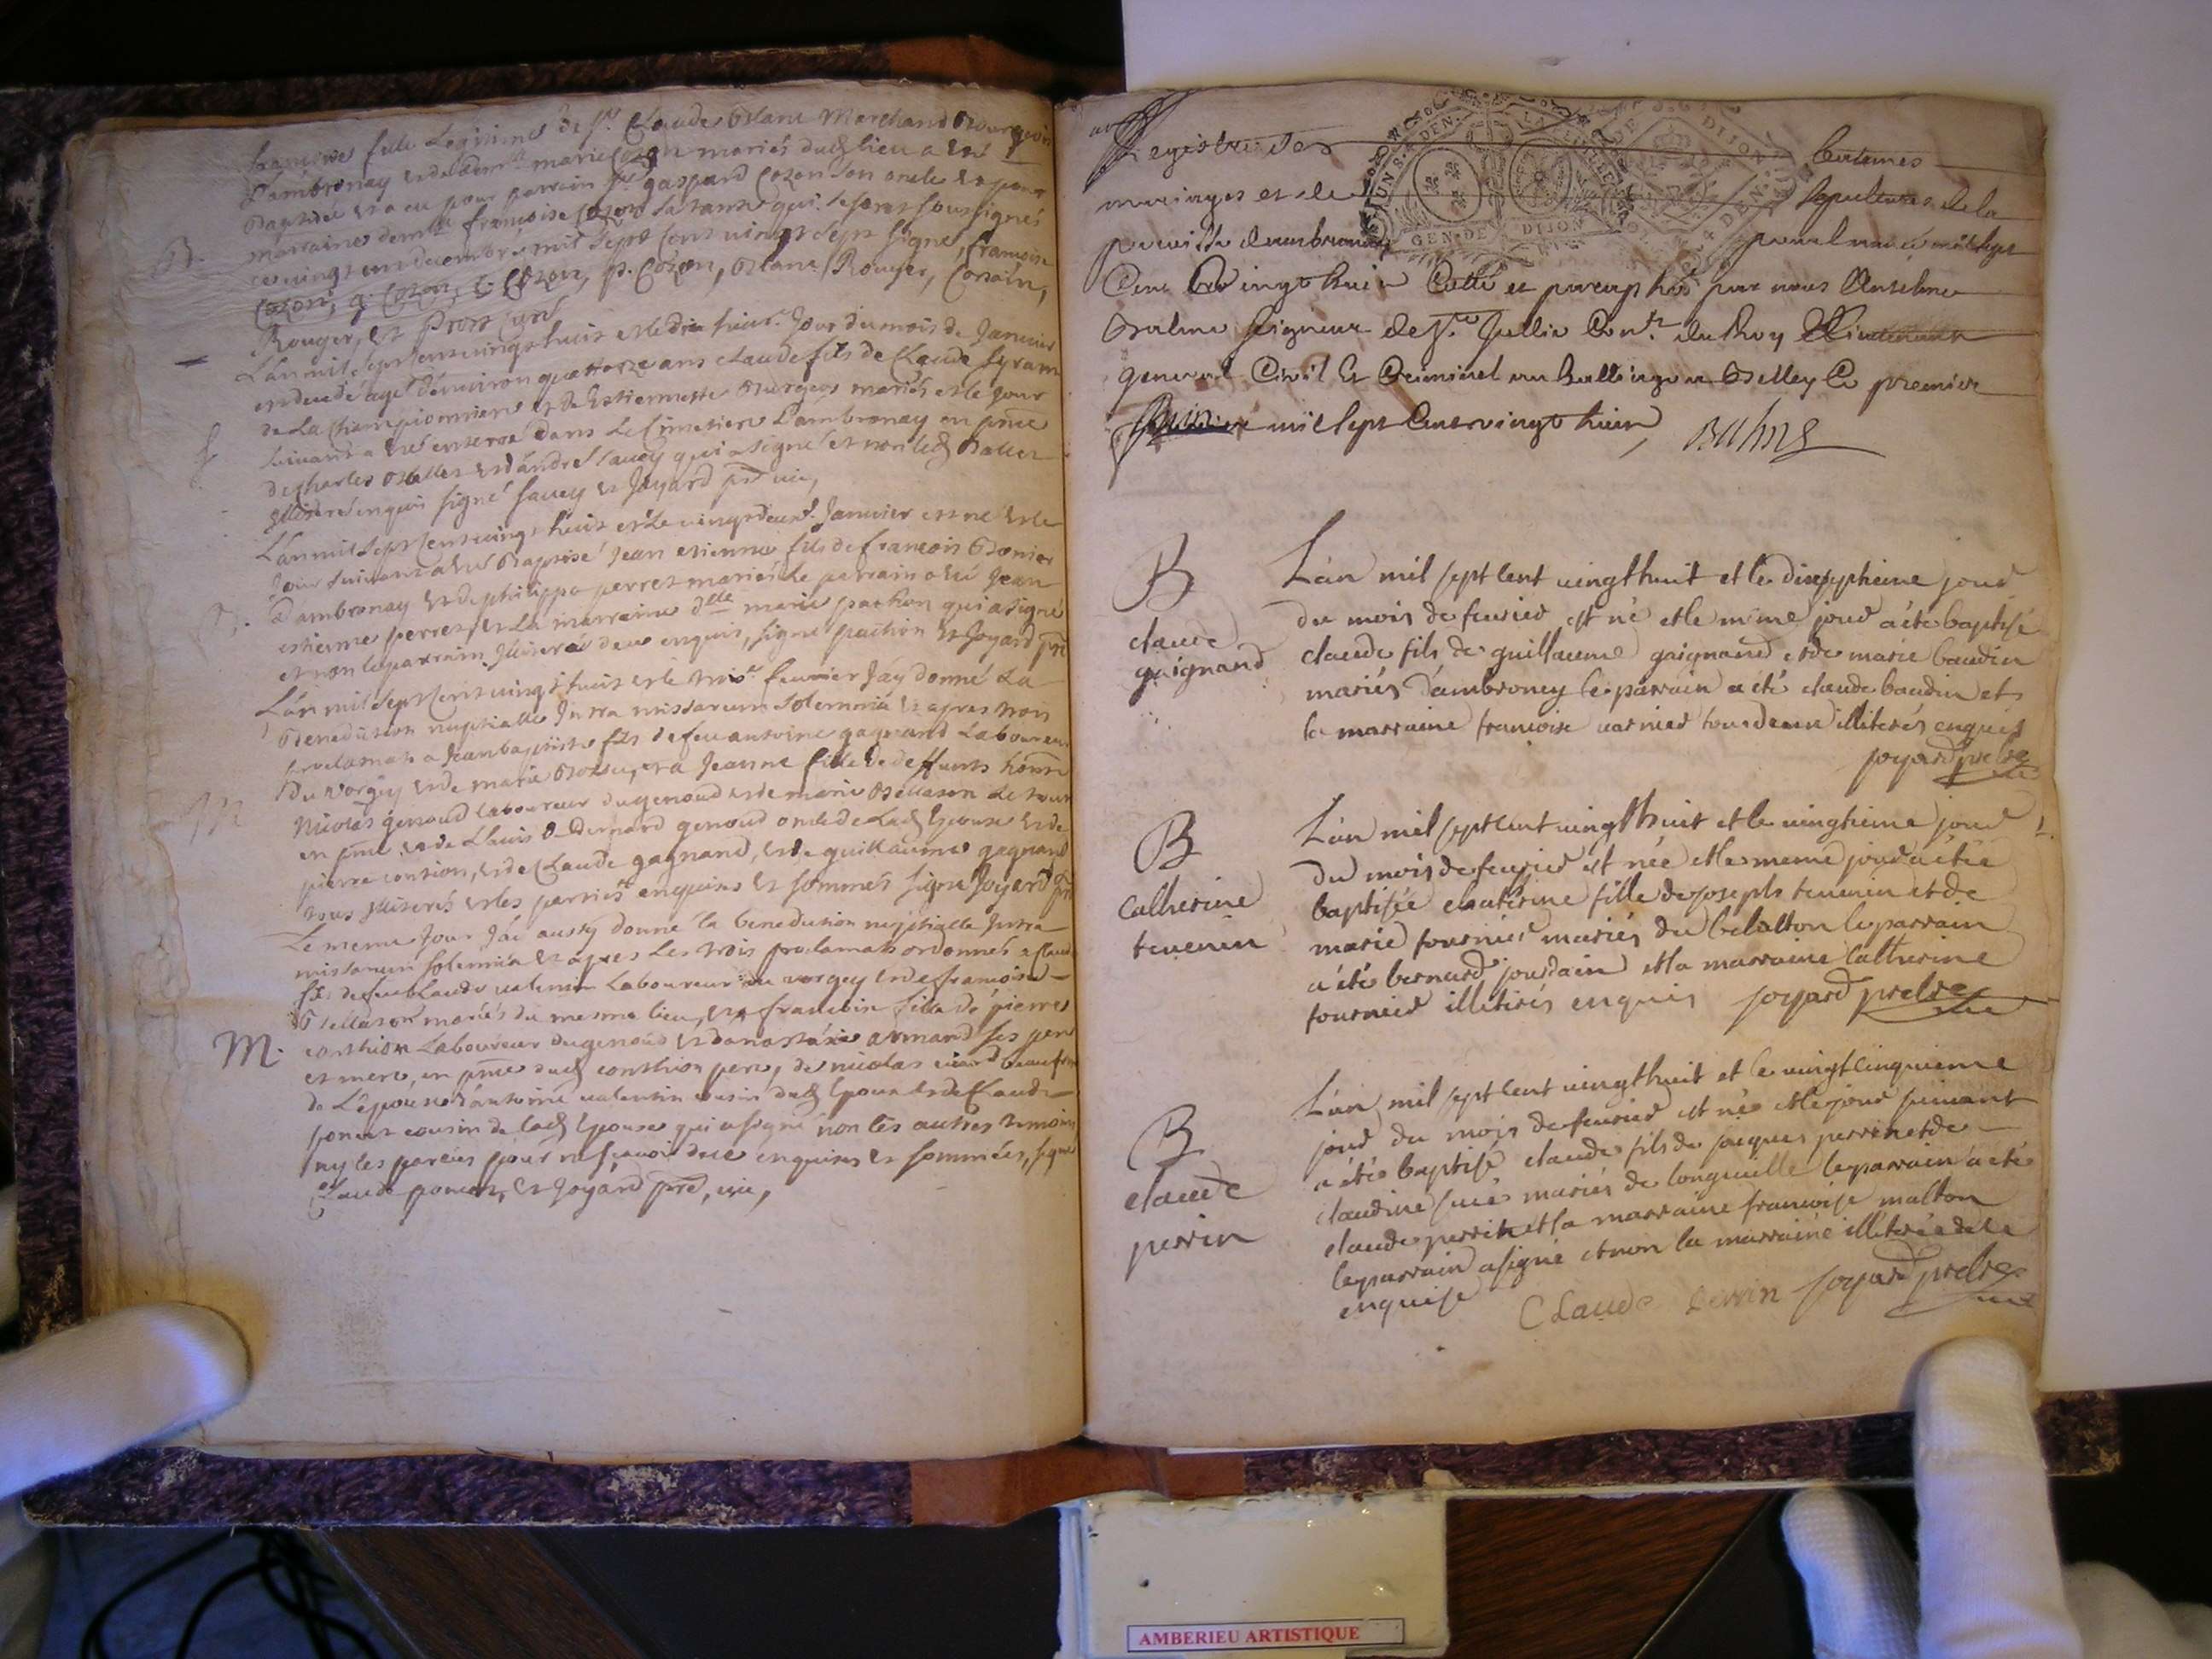 françoise fille Legitime de Sr. Claude Blanc Marchand Bourgeois
D'ambronay et de demlle marie Cozon mariés dud lieu a été
Baptisée et a eu pour parrain Sr gaspard Cozon son oncle et pour
marraine demlle françoise Cozon sa tante qui se sont soussignés
B.
ce vingt un decembre mil sept cent vingt sept signé, françoise
Cozon, g. Cozon, C Cozon, p. Cozon, Blanc, Rouyer,
Rouyer, et
L'an mil sept cent vingt huit et le dix huit. Jour du mois de Janvier
est decedé agé d'environ quattorze ans claude fils de Claude
de La Championniere et de Estiennette mariés et le Jour
suivant a été enterré dans Le Cimetiere D'ambronay en pnce
S
de Charles et d'andré Sauey qui a signé et non led
enquis signé Sauey et Joyard ptre vic,
L'an mil sept cent vingt huit et Le vingt deux. Janvier est né et le
Jour suivant a été Baptisé Jean etienne fils de francois
d'ambronay et de philippa perret mariés Le parrain a été Jean
B.
estienne perret, et La marraine dlle marie pachon qui a signé
et non le parrain Illiteré de ce enquis, signé pachon et Joyard ptre
L'an mil sept cent vingt huit et le fevrier J'ay donné La
Benediction nuptialle Intra missarum solemnia et apres trois
proclamats a Jean baptiste fils de feu antoine gagnand Laboureur
Du vorgey et de marie et a Jeanne fille de deffunts honn
M
Nicolas genoud laboureur du genoud et de marie Bellaton Le tout
en pnce de Lluis de Bernard genoud oncle de Lad Epouse et de
pierre contion, et de Claude gagnand, et de guillaume gagnand
tous Illiterés et les parties enquises et sommés signé Joyard ptre
Le meme Jour J'ai aussy donné la benediction nuptialle Intra
missarum solemnia et apres Les trois proclamats ordonnés a
fils de feu Claude valentin Laboureur du vorgey et de françoise
Bellaton mariés du mesme lieu, et a francoise fille de pierre
M.
conthion Laboureur du genoud et d'anastasie armand ses pere
et mere, en pnce dud conthion pere, de nicolas
de L'epouse d'antoine valentin cousin dud Epoux et de Claude
poncet cousin de lad Epouse qui a signé non les autres temoins
ny les parties pour ne sçavoir de ce enquises et sommées, signé
Claude poncet, et Joyard ptre, vic,
Registre des batemes
mariages et de sepultures de la
paroisse d'ambronay pour l'année mil sept
Cent Vingt huit Cotté et paraphés par nous Anselme
Balme Seigneur de Ste Jullie Conr. du Roy Lieutenant
general Civil Et Criminel au Balliage de Belley Ce premier
mil sept Cent vingt huit Balme
GEN. DE DIJON
B
claude
gaignand
L'an mil sept cent vingt huit et le dixseptieme jour
du mois de fevrier est né et le même jour a été baptisé
claude fils de guillaume gaignand et de marie baudin
mariés d'ambroney le parrain a été claude baudin et
la marraine francoise varnier tous deux illiterés enquis
joyard prebtre
B
Catherine
tevenin
L'an mil sept cent vingt huit et le vingtieme jour
du mois de fevrier est née et le meme jour a été
baptisée catherine fille de joseph tevenin et de
marie fournier mariés du belatton le parrain
a été bernard jourdain et la marraine Catherine
fournier illiterés enquis joyard prebtre
B
claude
perrin
L'an mil sept cent vingt huit et le vingt cinquieme
jour du mois de fevrier est né et le jour suivant
a été baptisé claude fils de jacques perrin et de
claudine mariés de longeville le parrain a été
claude perrin et la marraine francoise malton
le parrain a signé et non la marraine illiterée de ce
enquise Claude Perrin joyard prebtre
AMBERIEU ARTISTIQUE